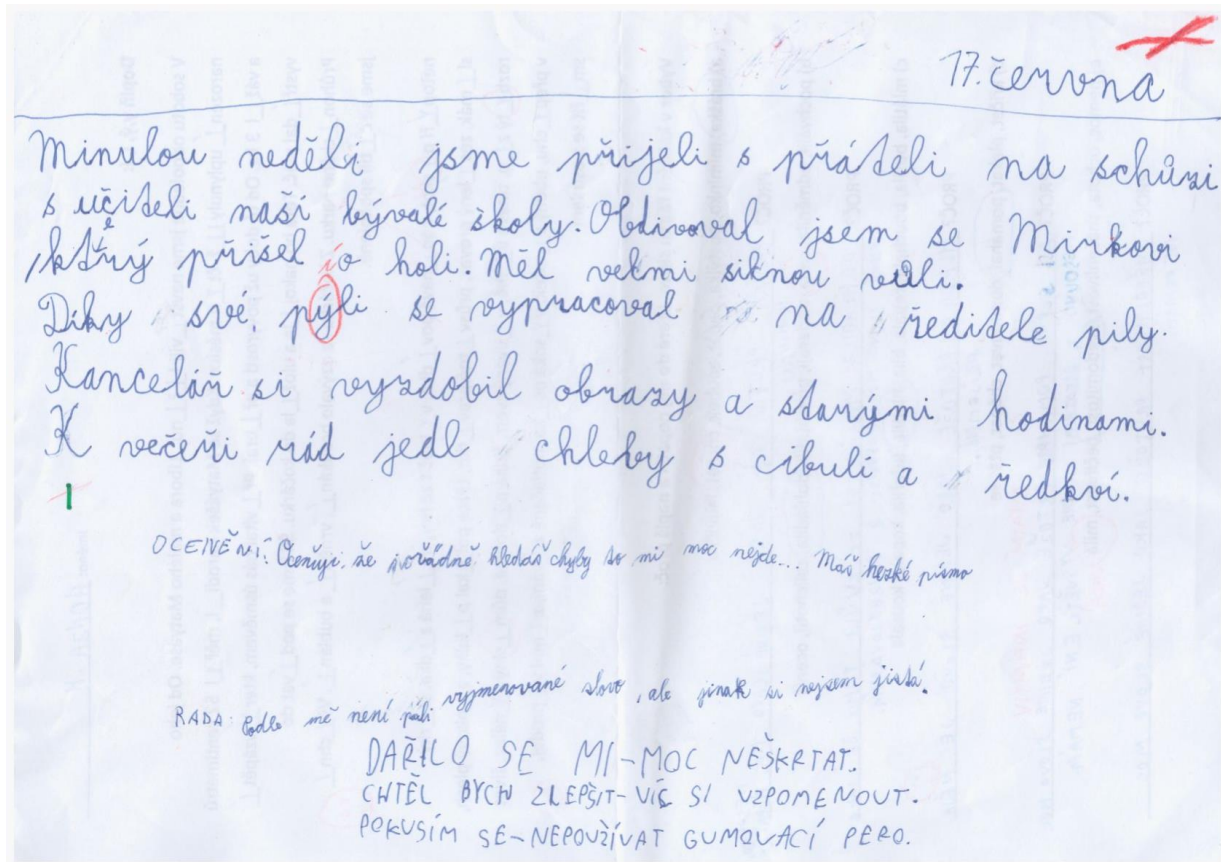 17. června
Minulou neděli jsme přijeli s přáteli na schůzi
s učiteli naší bývalé školy. Obdivoval jsem se Mirkovi
, který přišel o holi. Měl velmi silnou vůli.
Díky své pýli se vypracoval na ředitele pily.
Kancelář si vyzdobil obrazy a starými hodinami.
K večeři rád jedl chleby s cibulí a ředkví.
1
OCENĚNÍ: Oceňuji, že pořádně hledáš chyby to mi moc nejde... Máš hezké písmo
RADA: Podle mě není píli vyjmenované slovo, ale jinak si nejsem jistá.
DAŘILO SE MI-MOC NEŠKRTAT.
CHTĚL BYCH ZLEPŠIT-VÍC SI VZPOMENOUT.
POKUSÍM SE-NEPOUŽÍVAT GUMOVACÍ PERO.